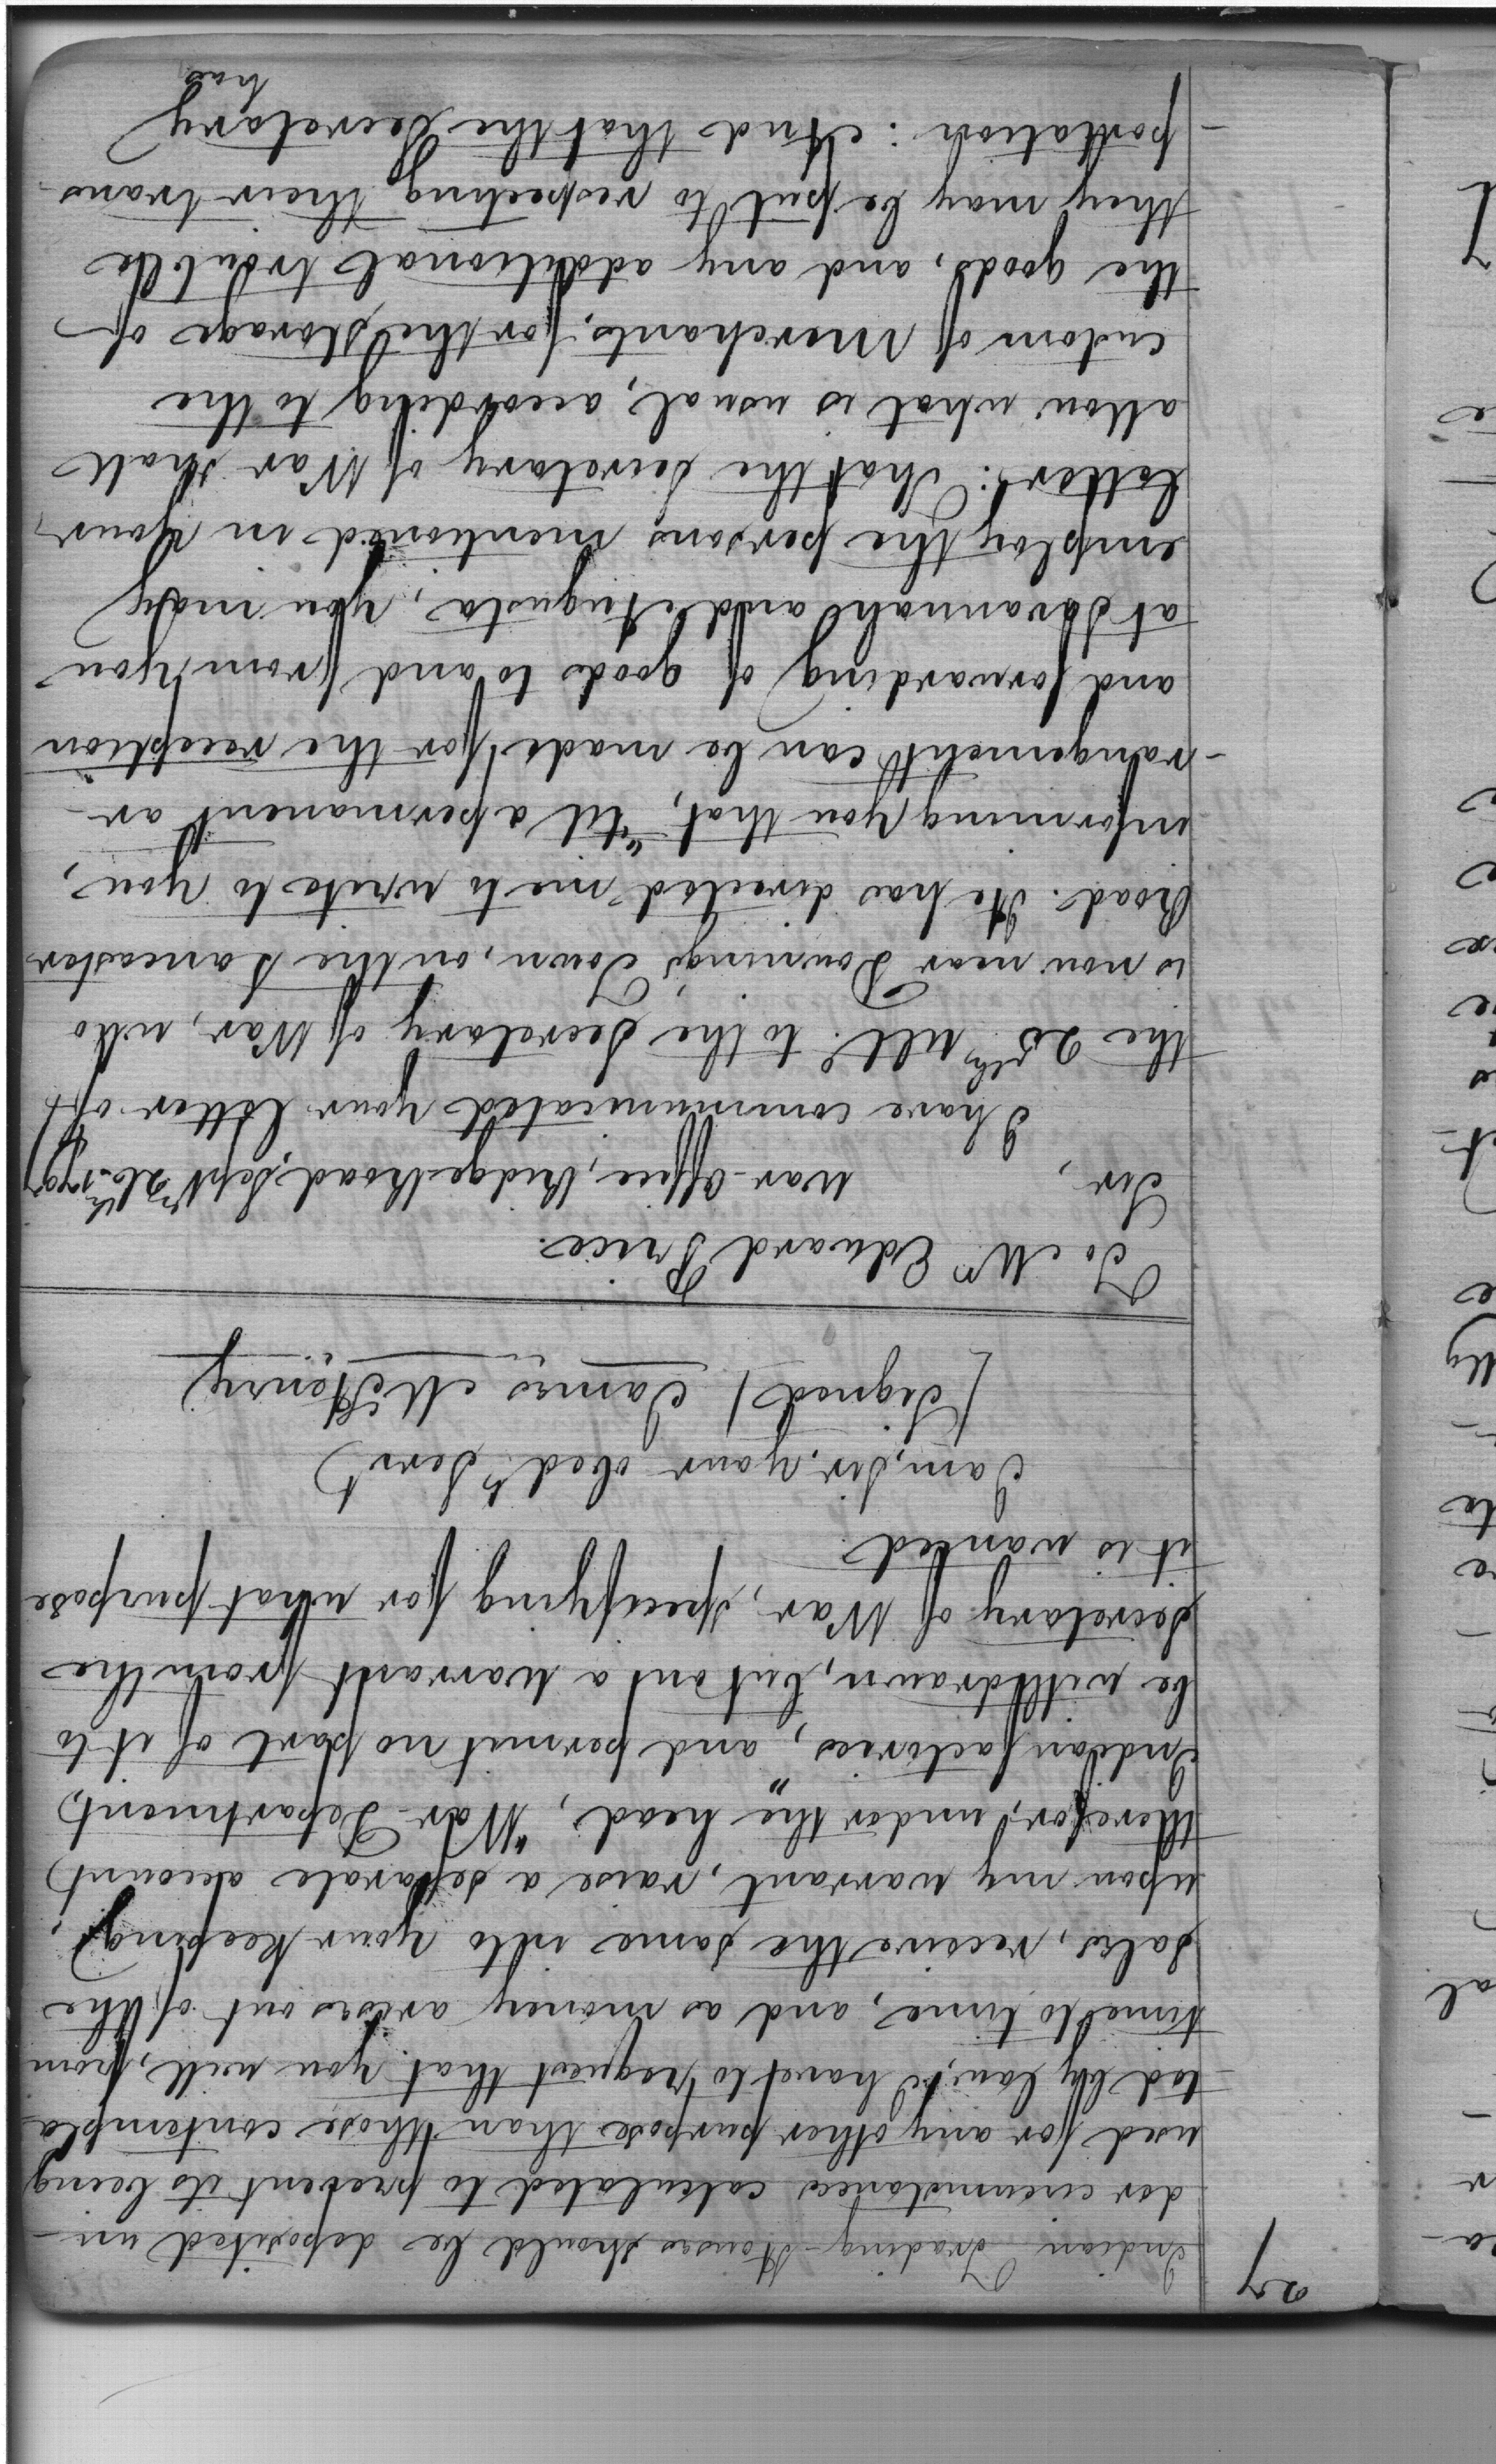 27
Indian Trading-Houses should be deposited un-
der circumstances calculated to prevent its being
used for any other purpose than those contempla
-ted by law, I have to request that you will, from
time to time, and as money arises out of the
sales, receive the same into your keeping;
upon my warrant, raise a separate account
therefor, under the head, "War-Department,
Indian factories", and permit no part of it to
be withdrawn, but on a warrant from the
Secretary of War, specifying for what purpose
it is wanted.
I am, Sir, your obedt Servt
[Signed] James McHenry
To Mr Edward Price.
Sir, War-Office, Ridge Road, Septr 26th 1797
I have communicated your letter of
the 25th ulto to the Secretary of War, who
is now near Downing's Town, on the Lancaster
Road. He has directed me to write to you,
informing you that, "'til a permanent ar-
-rangement can be made for the reception
and forwarding of goods to and from you
at Savannah and Augusta, you may
employ the persons mentioned in your
letter: That the Secretary of War shall
allow what is usual, according to the
custom of Merchants, for the storage of
the goods, and any additional trouble
they may be put to respecting their trans-
-portation: And that the Secretary
has